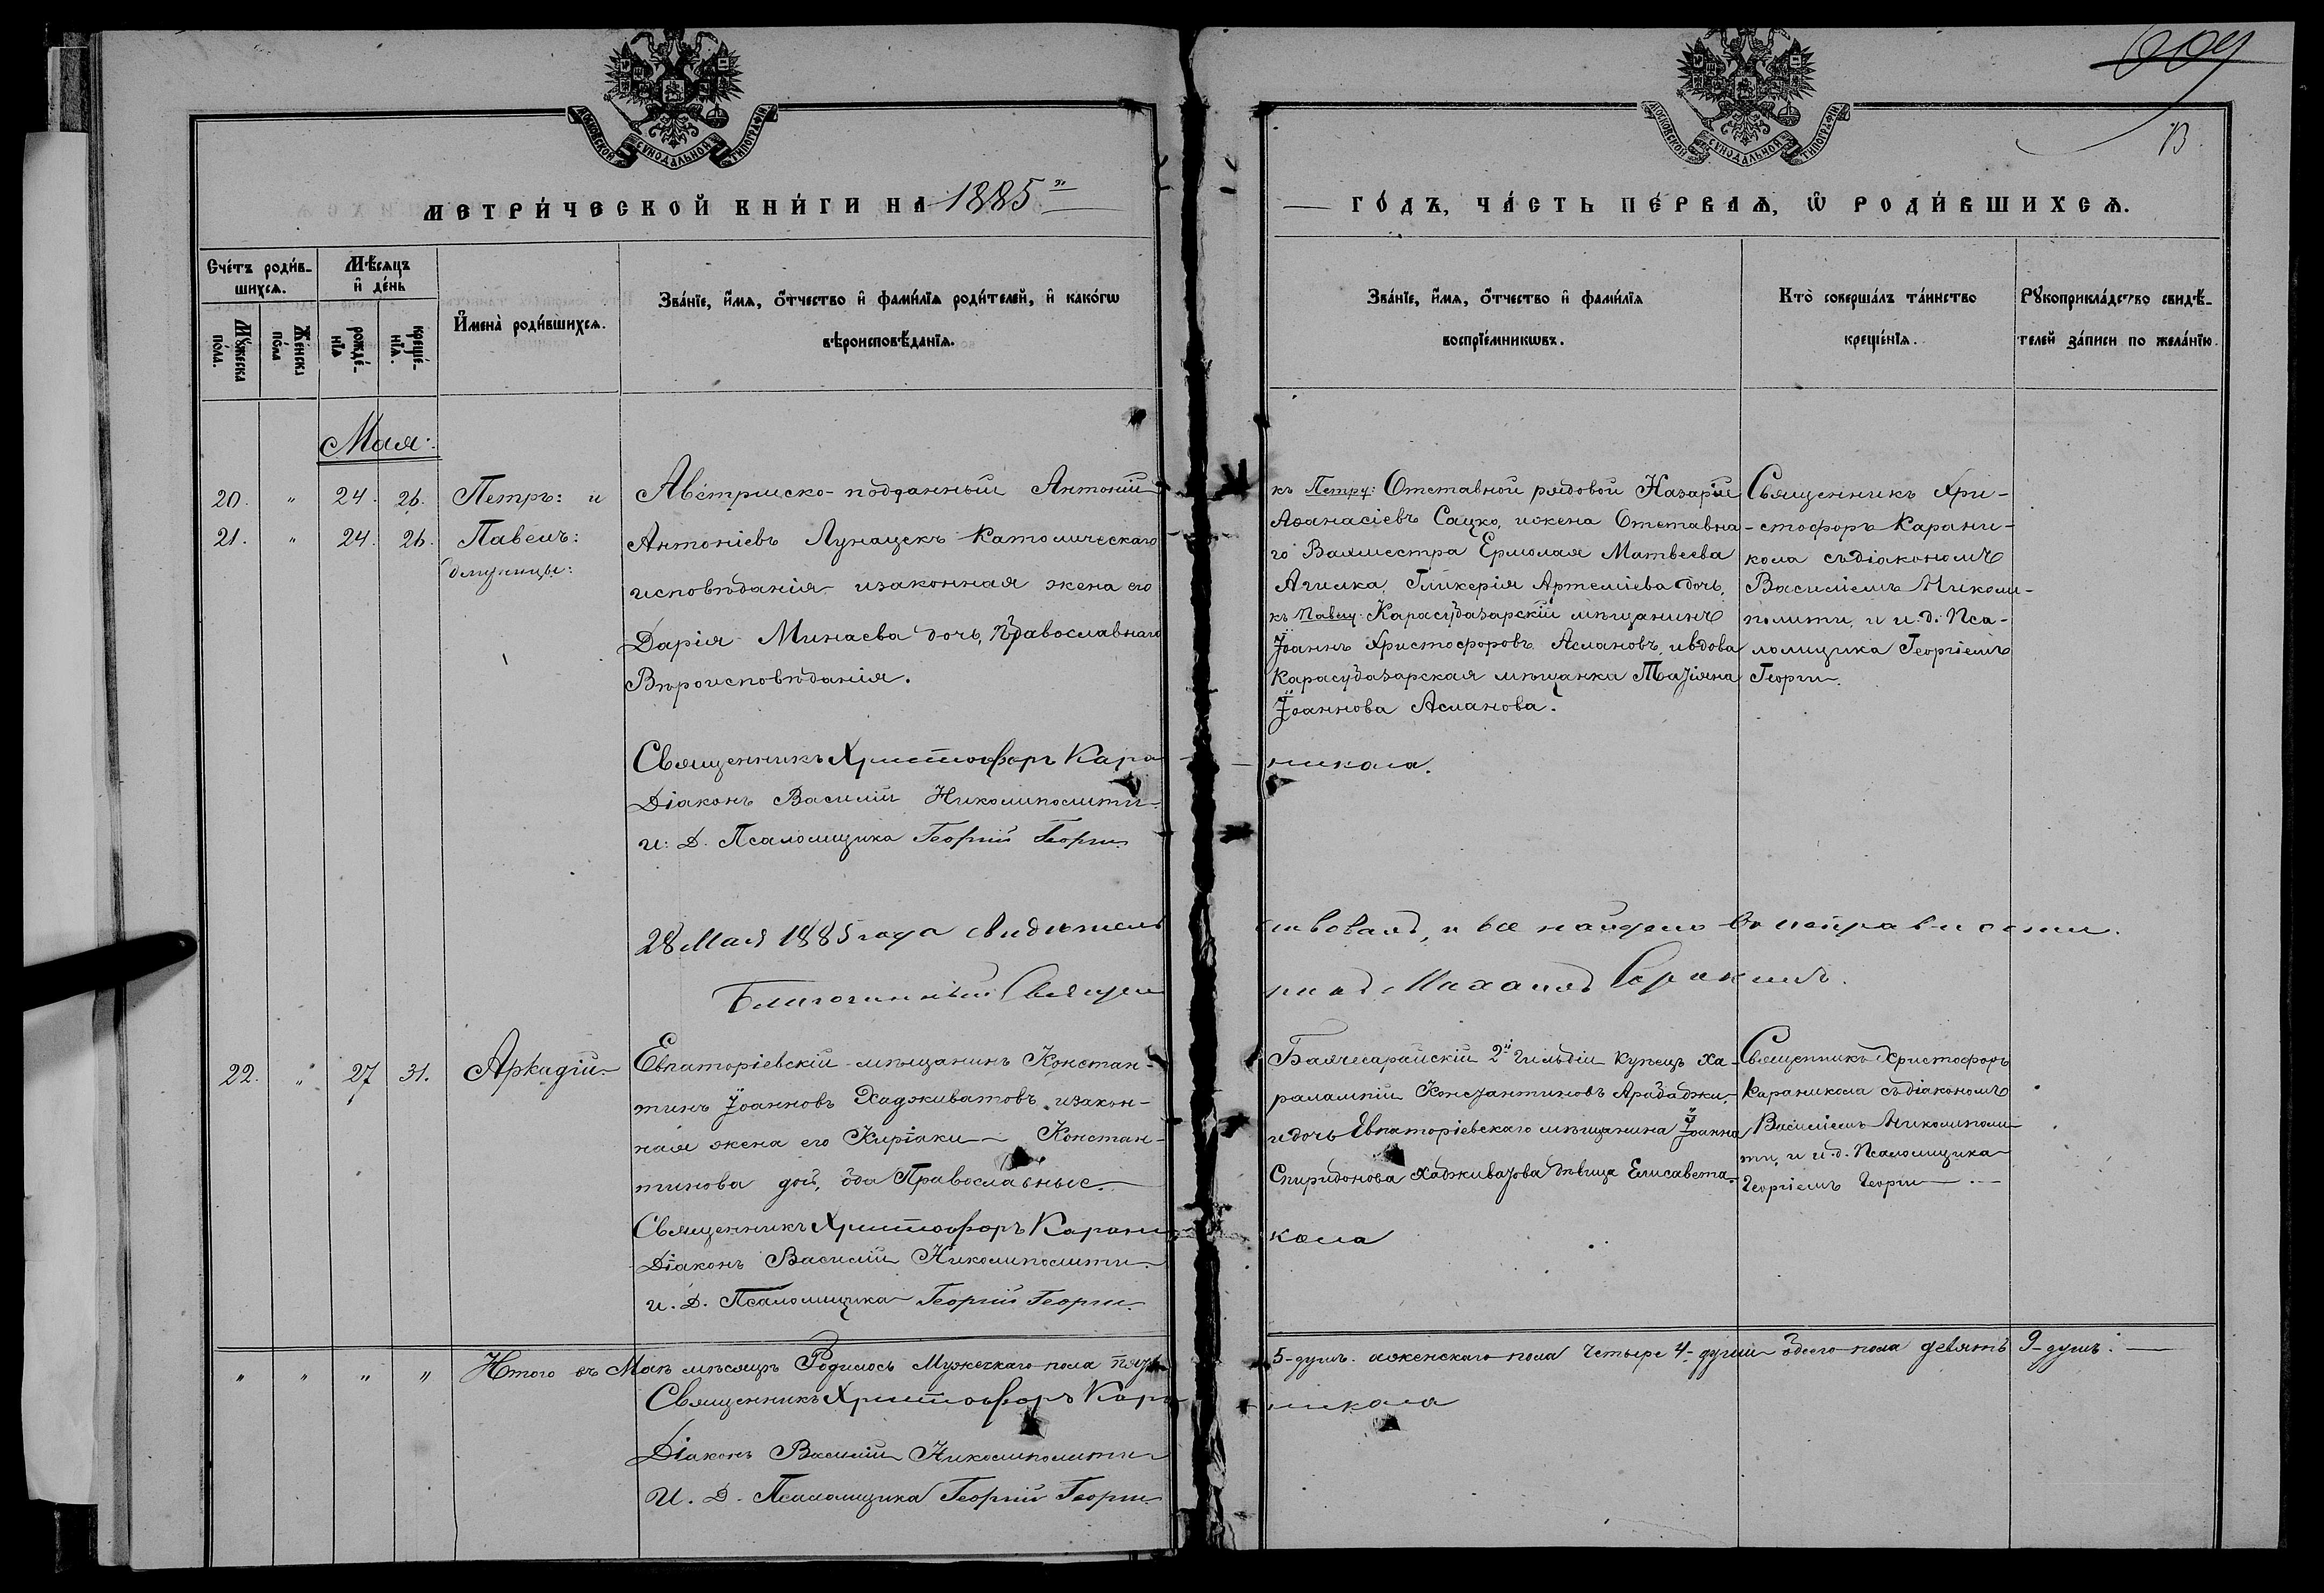 609
13
МОСКОВСКОЙ СѴНОДАЛЬНОЙ ТИПОГРАФІИ
МОСКОВСКОЙ СѴНОДАЛЬНОЙ ТИПОГРАФІИ
МЕТРИ́ЧЕСКОЙ КНИ́ГИ НА 1885й
ГО́ДЪ, ЧА́СТЬ ПЕ́РВАѦ, Ѡ РОДИ́ВШИХСѦ.
Сче́тъ роди́в-
шихсѧ.
Мꙋжеска
по́ла.
Же́нска
по́ла
Мѣ́сѧцъ
и҆ де́нь
рожде́-
нїѧ
креще́-
нїѧ.
И҆мена̀ роди́вшихсѧ.
Зва́нїе, и҆́мѧ, ѻ҆́тчество и҆ фами́лїѧ роди́телей, и҆ како́гѡ
вѣроисповѣ́данїѧ.
Зва́нїе, и҆́мѧ, ѻ҆́тчество и҆ фами́лїѧ
воспрїе́мникѡвъ.
Кто̀ соверша́лъ та́инство
креще́нїѧ.
Рꙋкоприкла́дство свидѣ́-
телей за́писи по жела́нїю.
Мая:
20. " 24. 26. Петръ: и
21. " 24. 26. Павелъ:
близнецы:
Австрийско-подданный Антоній
Антоніевъ Лунацекъ Католическаго
исповѣданія изаконная жена его
Дарія Минаева дочь, Православнаго
Вѣроисповѣданія.
къ Петру: Отставной рядовой Назарій
Аѳанасіевъ Сацко, ижена Отставна-
го Вахмистра Ермолая Матвеева
Агилка, Гликерія Артеміева дочь,
къ Павлу: Карасубазарскій мѣщанинъ
Іоаннъ Христофоровъ Аслановъ, ивдова
Карасубазарская мѣщанка Татіяна
Іоаннова Асланова.
Священникъ Хри-
-стофоръ Карани-
кола съдіакономъ
Василіемъ Николи-
полити, и и.д. Пса-
ломщика Георгіемъ
Георги.
Священникъ Христофоръ Кара
никола.
Діаконъ Василій Николиполити
и: д. Псаломщика Георгій Георги
28 Мая 1885 года свидѣтель
ствовалъ, и все найдено въ исправности.
Благочинный Священ
никъ Михаилъ
22. " 27 31. Аркадій
Евпаторіевскій мѣщанинъ Констан-
тинъ Іоанновъ Хадживатовъ изакон-
ная жена его Киріаки Констан-
тинова дочь, оба Православные.
Бахчесарайскій 2й Гильдіи Купецъ Ха-
ралампій Константиновъ Арабаджи,
идочь Евпаторіевскаго мѣщанина Іоанна
Спиридонова Хадживатова дѣвица Елисавета.
Священникъ Христофоръ
Караникола съдіакономъ
Василіемъ Николиполи-
ти, и и.д. Псаломщика
Георгіемъ Георги
Священникъ Христофоръ Карани
кола
Діаконъ Василій Николиполити
и. д. Псаломщика Георгій Георги.
" " " " Итого въ Маѣ мѣсяцѣ Родилось Мужескаго пола пять
5-душъ. иженскаго пола четыре 4-души обоего пола девять 9-душъ.
Священникъ Христофоръ Кара
никола
Діаконъ Василій Николиполити
И. д. Псаломщика Георгій Георги